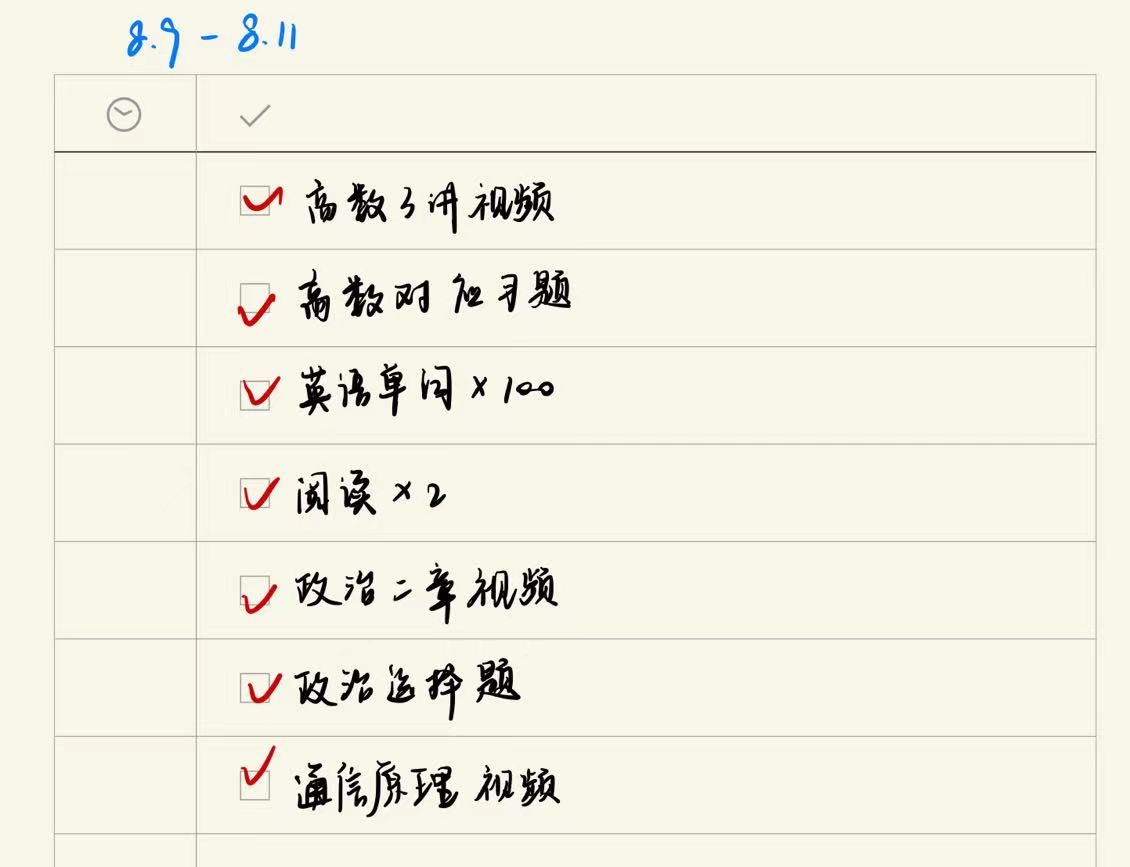 8.9 - 8.11
高数3讲视频
高数对应习题
英语单词×100
阅读×2
政治二章视频
政治选择题
通信原理视频